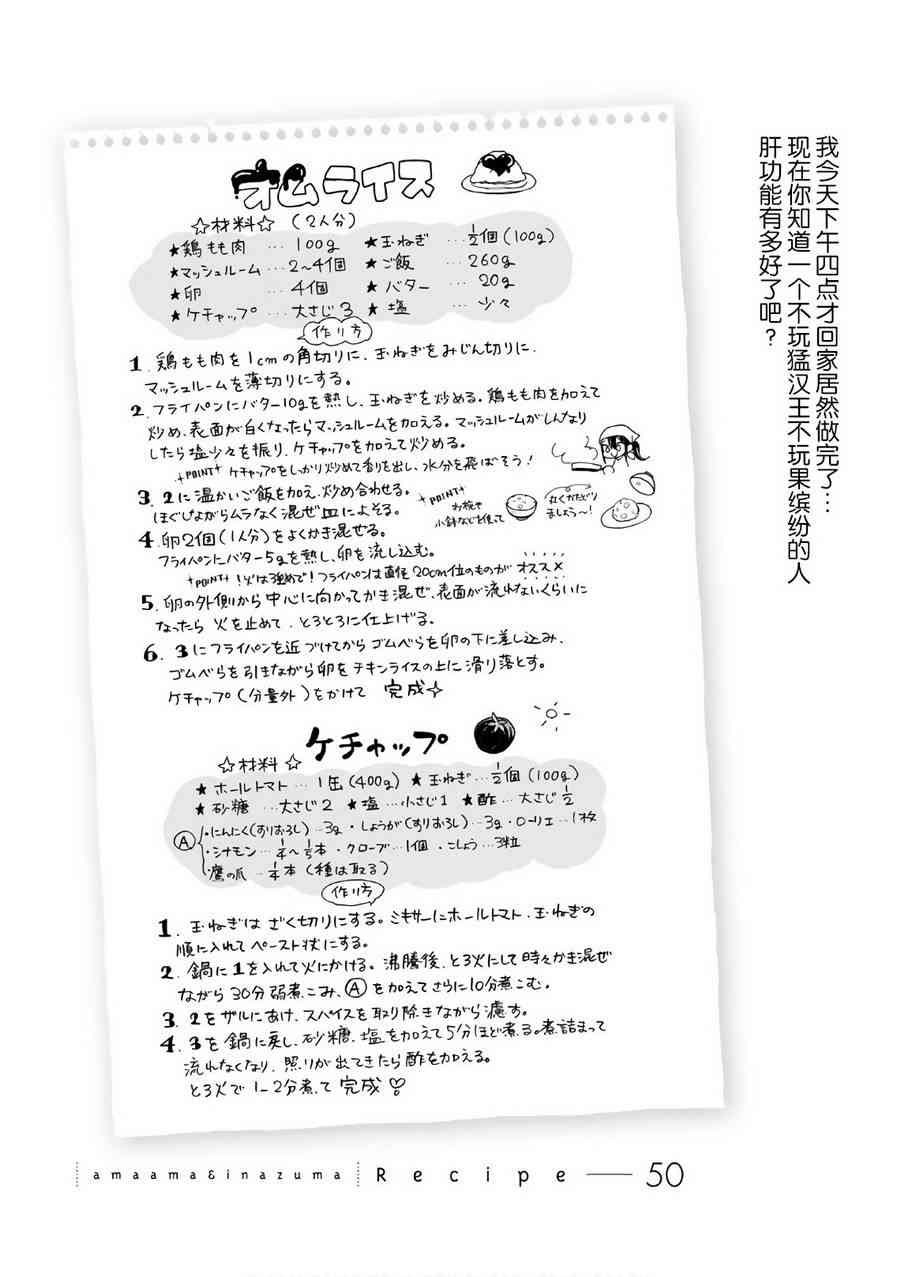 オムライス
☆材料☆ (2人分)
★鶏もも肉 … 100g ★玉ねぎ …½個(100g)
★マッシュルーム…2〜4個 ★ご飯 … 260g
★卵 … 4個 ★バター … 20g
★ケチャップ …大さじ3 ★塩 … 少々
作り方
1. 鶏もも肉を1cmの角切りに、玉ねぎをみじん切りに、
マッシュルームを薄切りにする。
2. フライパンにバター10gを熱し、玉ねぎを炒める。鶏もも肉を加えて
炒め、表面が白くなったらマッシュルームを加える。マッシュルームがしんなり
したら塩少々を振り、ケチャップを加えて炒める。
POINT ケチャップをしっかり炒めて香りを出し、水分を飛ばそう!
3. 2に温かいご飯を加え、炒め合わせる。
ほぐしながらムラなく混ぜ皿によそる。
POINT
お椀や
小鉢などを使って
丸くかたどり
ましょう〜!
4. 卵2個(1人分)をよくかき混ぜる。
フライパンにバター5gを熱し、卵を流し込む。
POINT !火は強めで!フライパンは直径20cm位のものがオススメ
5. 卵の外側から中心に向かってかき混ぜ、表面が流れないくらいに
なったら 火を止めて、とろとろに仕上げる。
6. 3にフライパンを近づけてからゴムべらを卵の下に差し込み、
ゴムべらを引きながら卵をチキンライスの上に滑り落とす。
ケチャップ(分量外)をかけて 完成☆
ケチャップ
☆材料☆
★ホールトマト…1缶(400g) ★玉ねぎ…½個(100g)
★砂糖 …大さじ2 ★塩…小さじ1 ★酢…大さじ½
Ⓐ ・にんにく(すりおろし)…3g・しょうが(すりおろし)…3g・ローリエ…1枚
・シナモン…¼〜⅕本・クローブ…1個・こしょう…3粒
・鷹の爪…¼本(種は取る)
作り方
1. 玉ねぎは ざく切りにする。ミキサーにホールトマト、玉ねぎの
順に入れてペースト状にする。
2. 鍋に1を入れて火にかける。沸騰後、とろ火にして時々かき混ぜ
ながら30分弱煮こみ、Ⓐを加えてさらに10分煮こむ。
3. 2をザルにあけ、スパイスを取り除きながら濾す。
4. 3を鍋に戻し、砂糖、塩を加えて5分ほど煮る。煮詰まって
流れなくなり、照りが出てきたら酢を加える。
とろ火で1-2分煮て 完成♡
我今天下午四点才回家居然做完了…
现在你知道一个不玩猛汉王不玩果缤纷的人
肝功能有多好了吧?
amaama&inazuma Recipe — 50